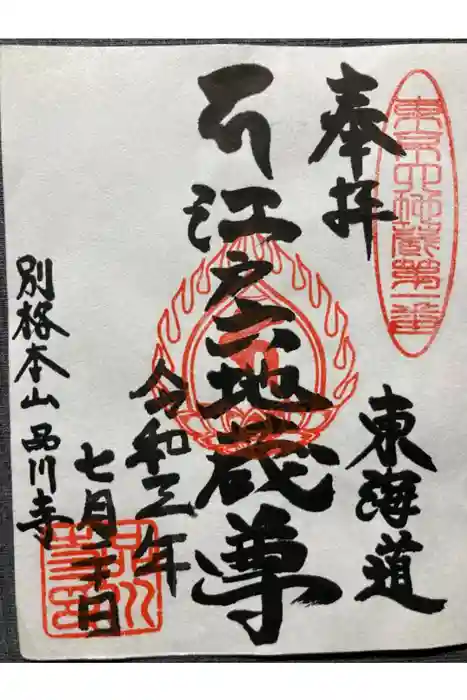 東京六地蔵第一番
奉拝
東海道
江戸六地蔵尊
令和三年
七月 日
別格本山 品川寺